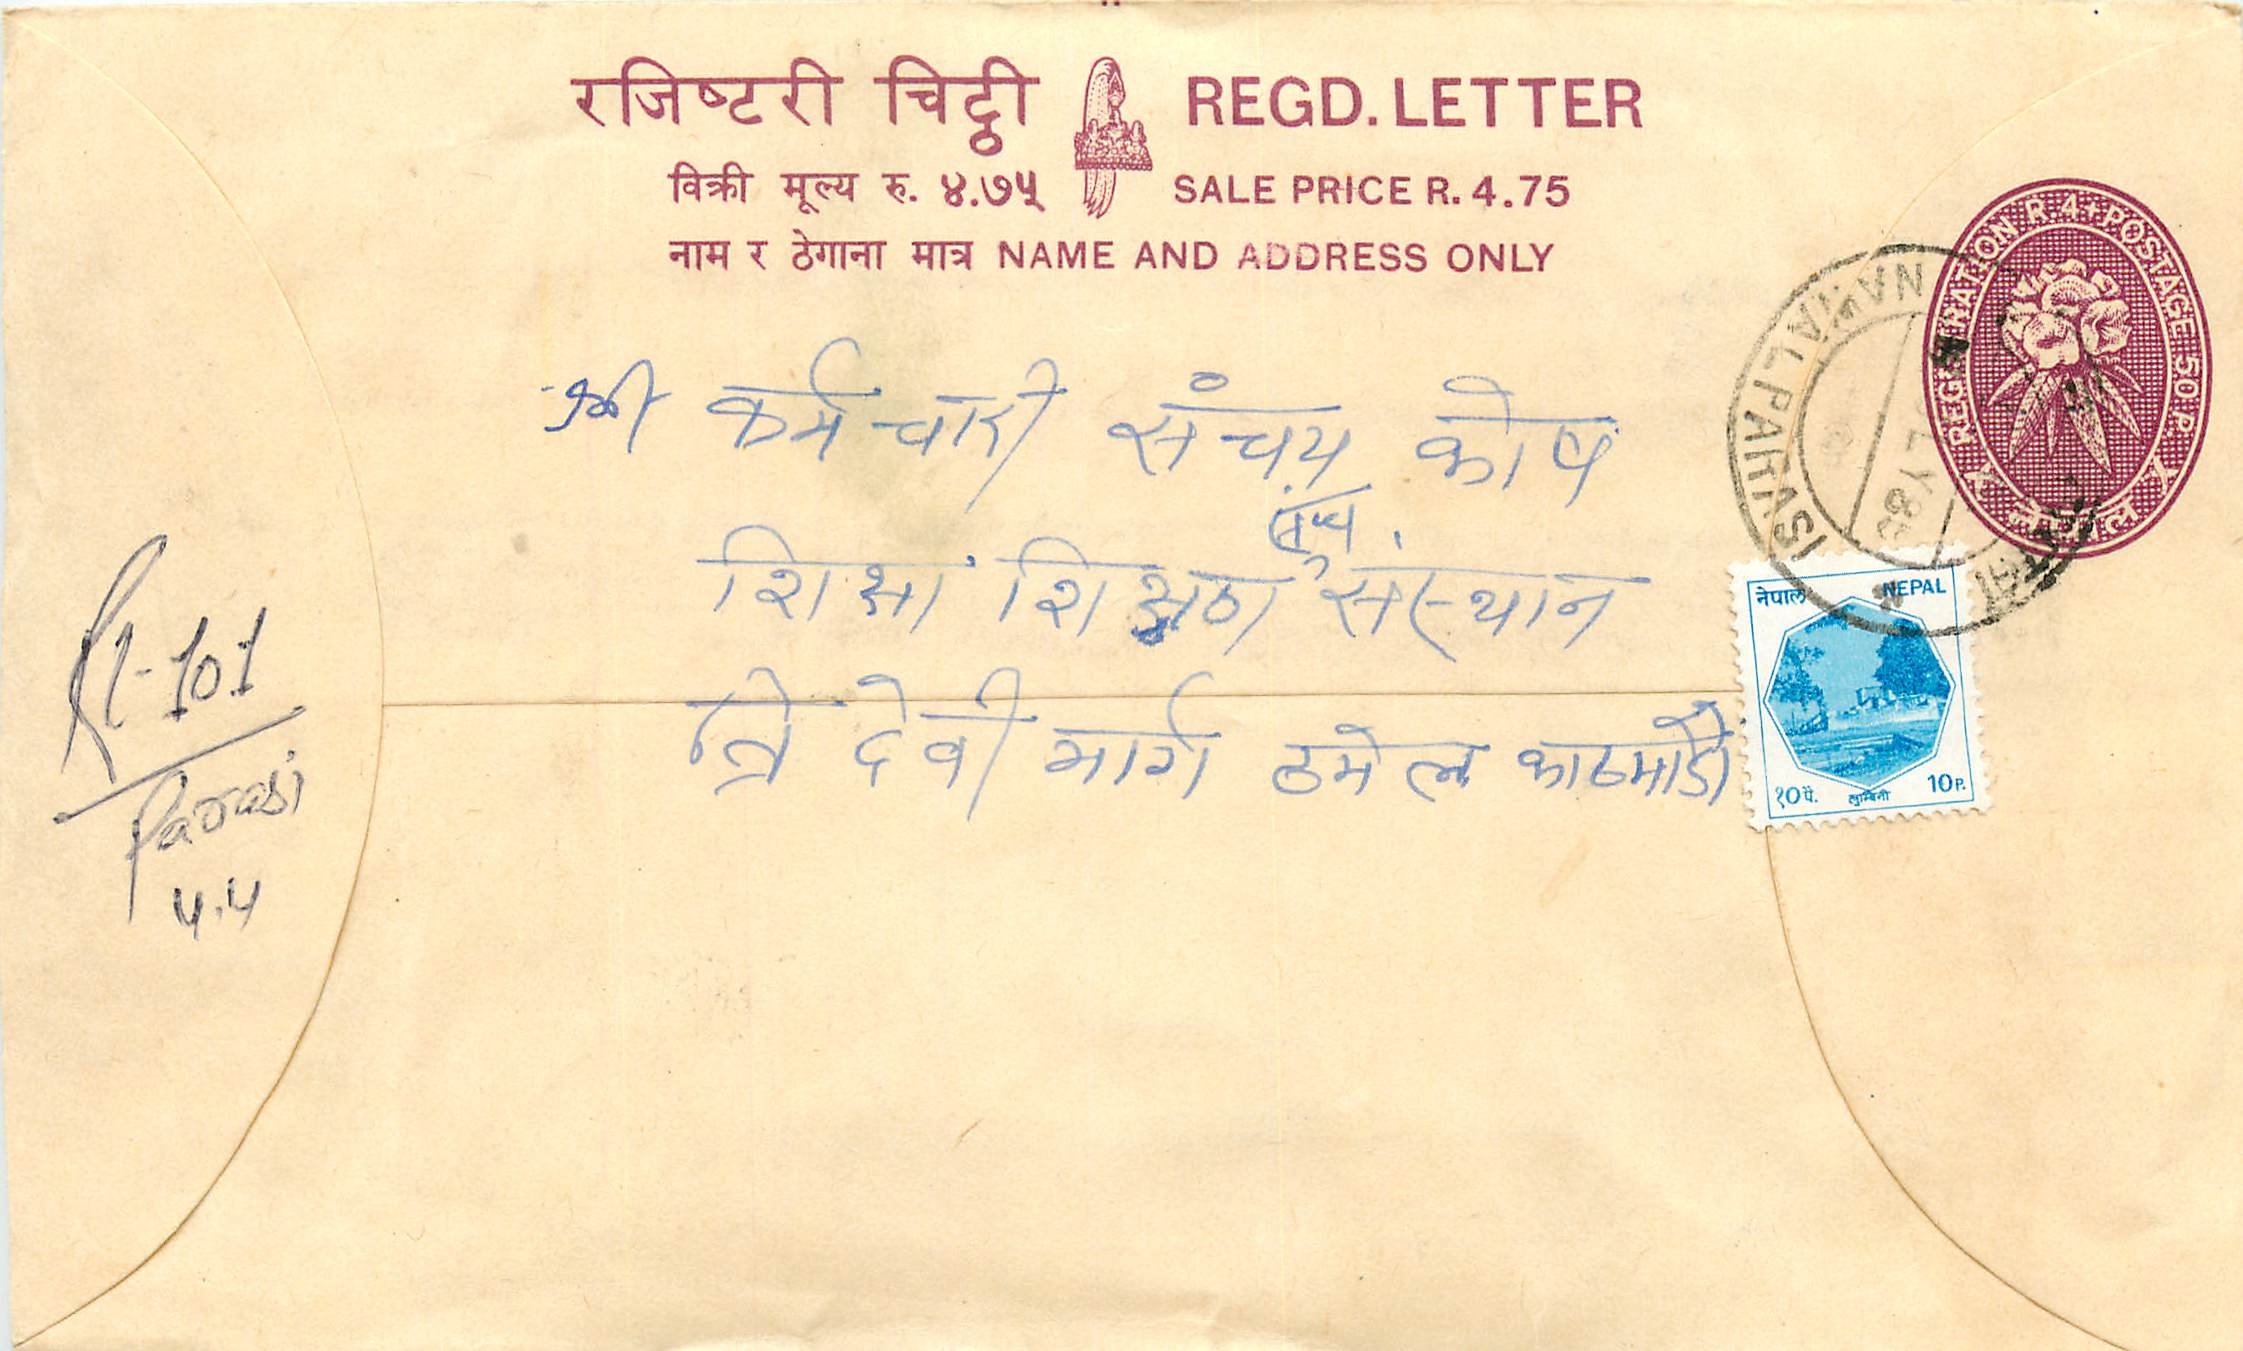 रजिष्टरी चिट्ठी REGD. LETTER
विक्री मूल्य रु. ४.७५ SALE PRICE R. 4.75
नाम र ठेगाना मात्र NAME AND ADDRESS ONLY
REGISTRATION R.4+POSTAGE 50 P.
नेपाल
NAWALPARASI
श्री कर्मचारी संचय कोष
शिक्षा शिक्षण संस्थान
त्रि देवी मार्ग ठमेल काठमाडौं
नेपाल NEPAL
१० पै. लुम्बिनी 10 P.
R1-101
Parasi
५.५